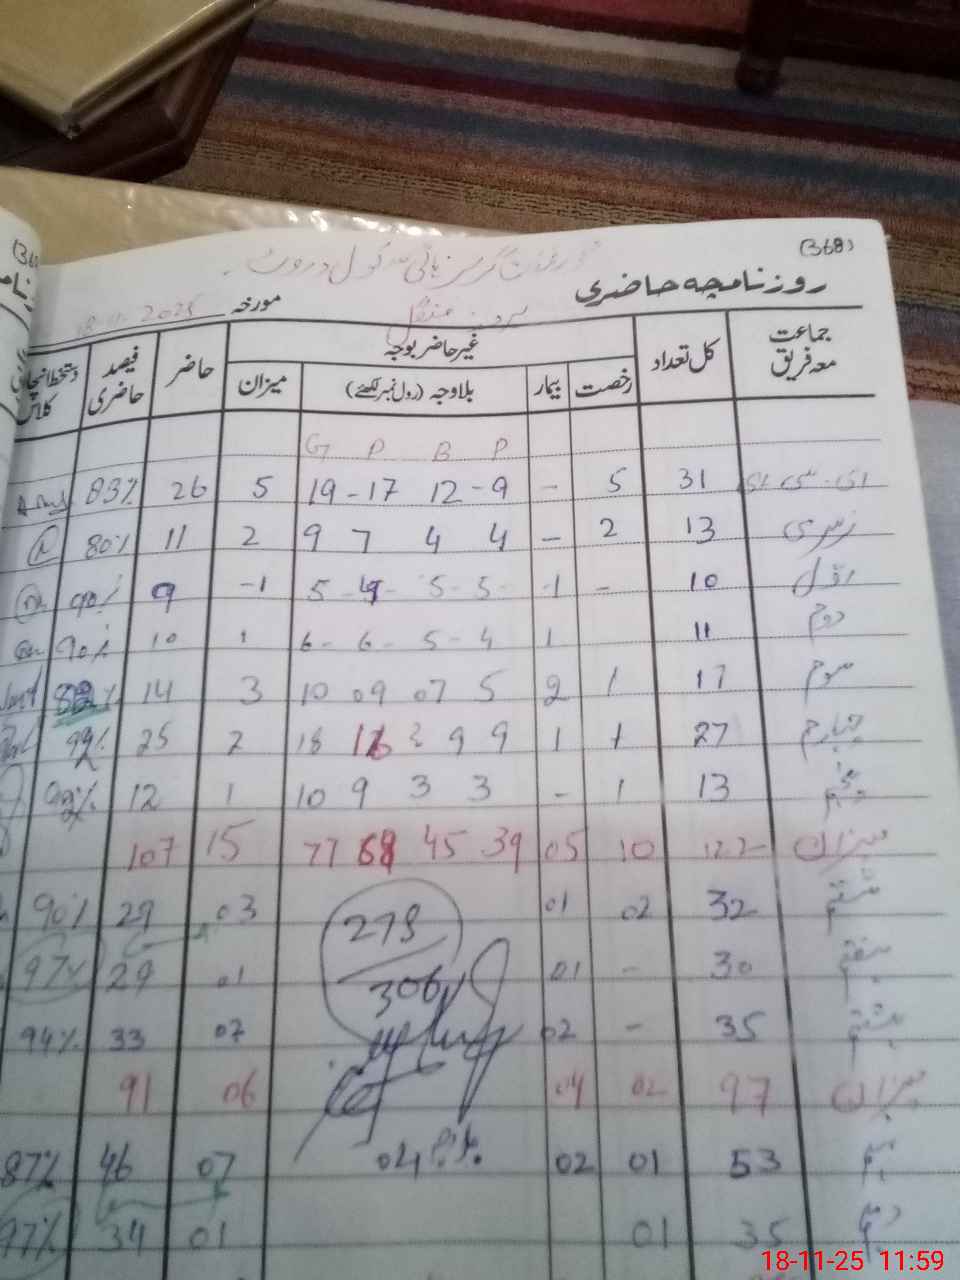 (368)
گورنمنٹ گرلز ہائی سکول
روزنامچہ حاضری
مورخہ 18-11-2025
جماعت معہ فریق کل تعداد غیر حاضر بوجہ حاضر فیصد حاضری دستخط انچارج کلاس
رخصت بیمار بلاوجہ (رول نمبر لکھئے) میزان
G P B P
ای سی ای 31 5 - 19 - 17 12 - 9 5 26 83%
نرسری 13 2 - 9 7 4 4 2 11 80%
اول 10 - -1 5 - 4 - 5 - 5 - -1 9 90%
دوم 11 1 6 - 6 - 5 - 4 1 10 90%
سوم 17 1 2 10 09 07 5 3 14 82%
چہارم 27 1 1 18 16 9 9 2 25 92%
پنجم 13 1 - 10 9 3 3 1 12 92%
میزان 122 10 05 77 68 45 39 15 107
ششم 32 02 01 03 29 90%
278
ہفتم 30 - 01 01 29 97%
306
ہشتم 35 - 02 02 33 94%
میزان 97 02 04 06 91
نہم 53 01 02 04 07 46 87%
دہم 35 01 01 34 97%
18-11-25 11:59